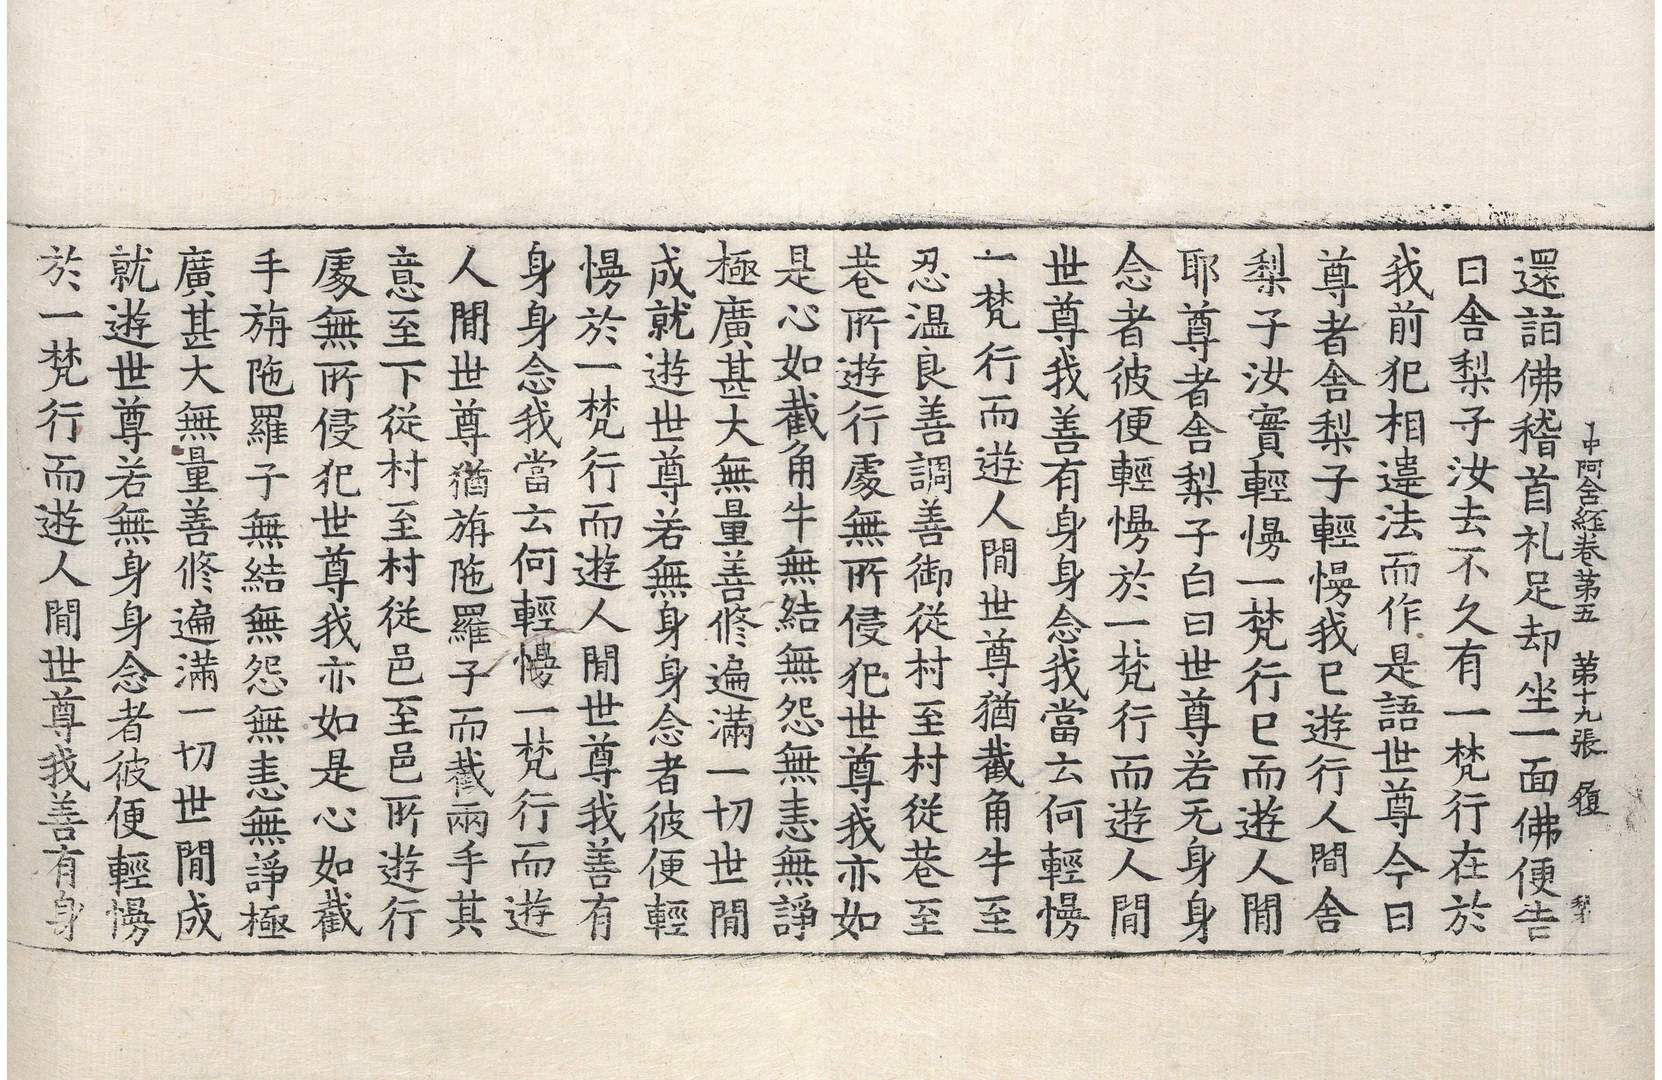 中阿含経卷第五　第十九張　履
還詣佛稽首礼足却坐一面佛便告
曰舍梨子汝去不久有一梵行在於
我前犯相違法而作是語世尊今日
尊者舍梨子輕慢我已遊行人間舍
梨子汝實輕慢一梵行已而遊人間
耶尊者舍梨子白曰世尊若无身身
念者彼便輕慢於一梵行而遊人間
世尊我善有身身念我當云何輕慢
一梵行而遊人間世尊猶截角牛至
忍温良善調善御從村至村從巷至
巷所遊行處無所侵犯世尊我亦如
是心如截角牛無結無怨無恚無諍
極廣甚大無量善修遍滿一切世間
成就遊世尊若無身身念者彼便輕
慢於一梵行而遊人間世尊我善有
身身念我當云何輕慢一梵行而遊
人間世尊猶旃陁羅子而截兩手其
意至下從村至村從邑至邑所遊行
處無所侵犯世尊我亦如是心如截
手旃陁羅子無結無怨無恚無諍極
廣甚大無量善修遍滿一切世間成
就遊世尊若無身身念者彼便輕慢
於一梵行而遊人間世尊我善有身